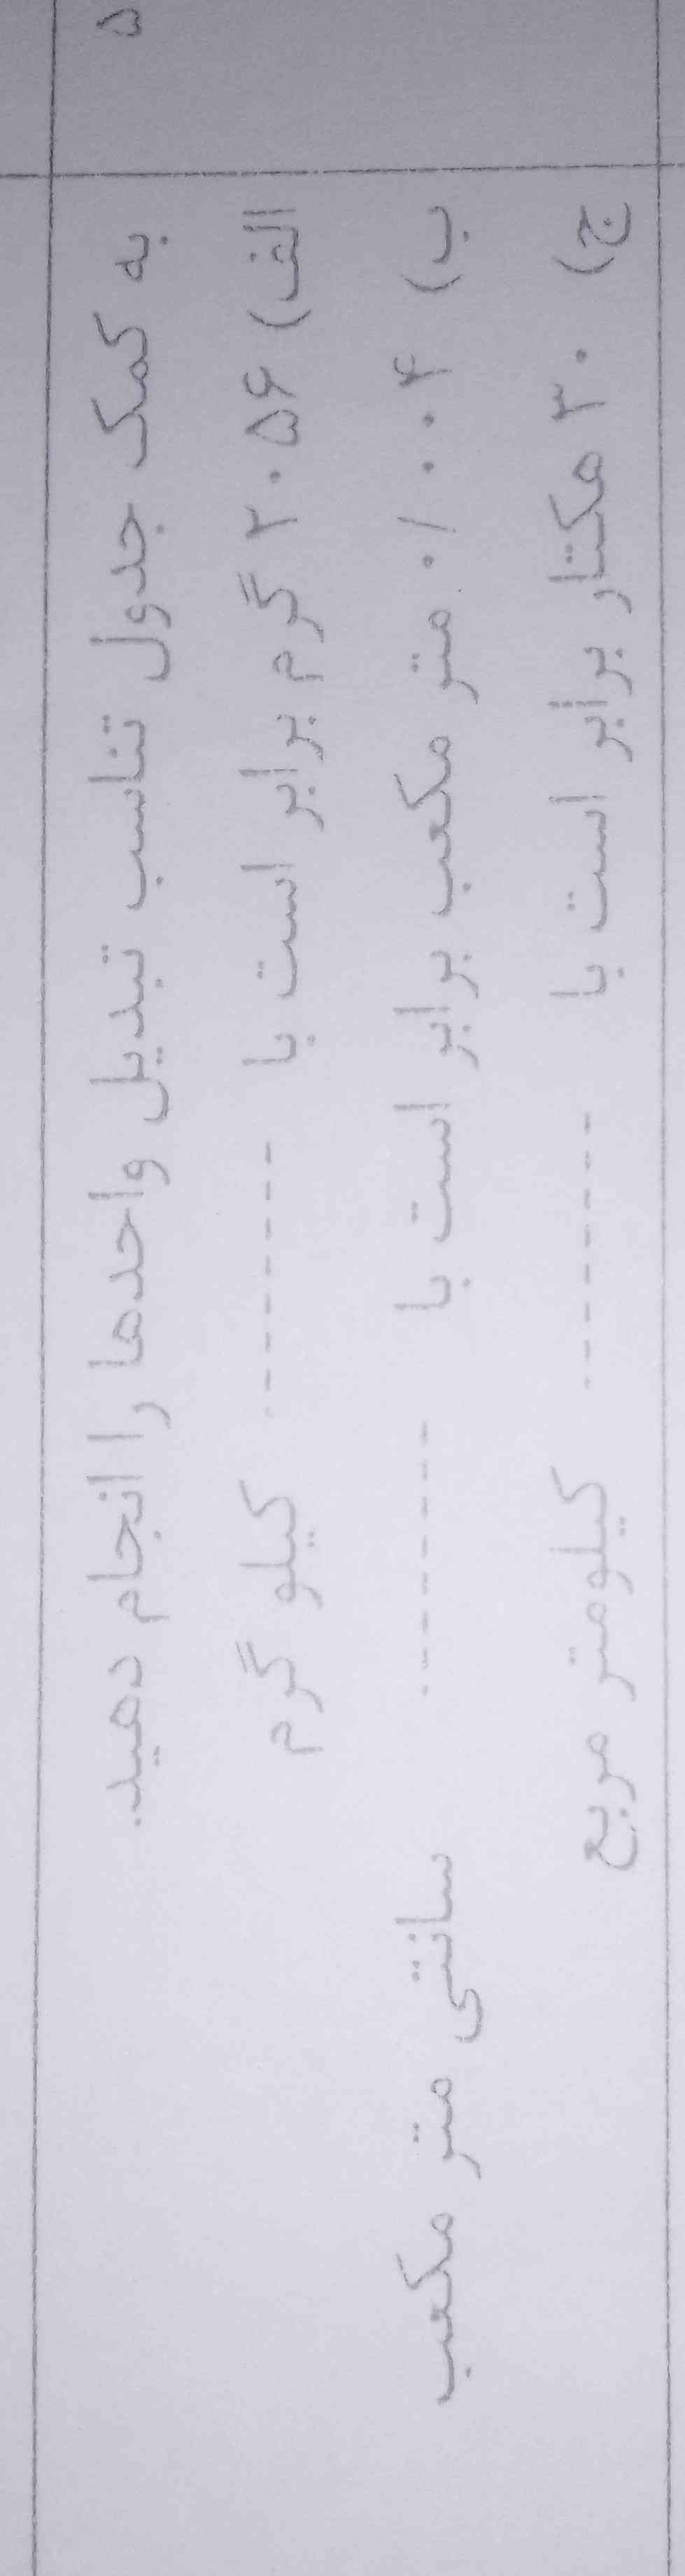 ۵
به کمک جدول تناسب تبدیل واحدها را انجام دهید.
الف) ۲۰۵۶ گرم برابر است با -------- کیلو گرم
ب) ۰/۰۰۴ متر مکعب برابر است با -------- سانتی متر مکعب
ج) ۳۰ هکتار برابر است با -------- کیلومتر مربع